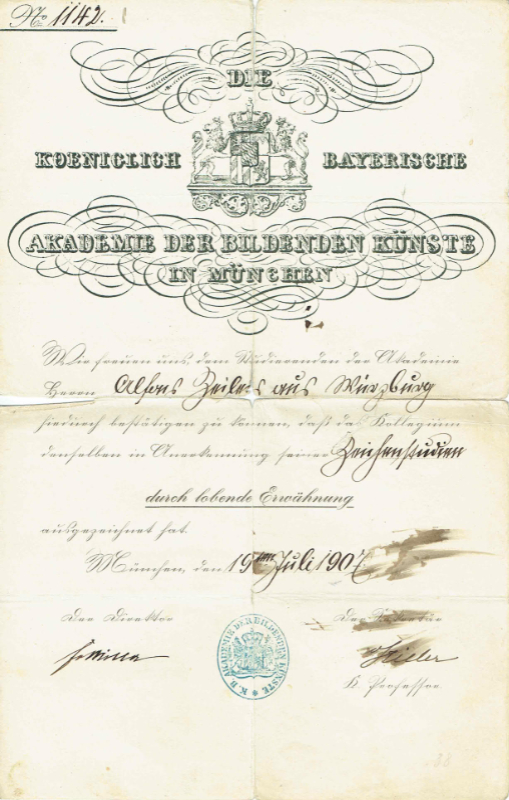 No 1142.
DIE
KOENIGLICH BAYERISCHE
AKADEMIE DER BILDENDEN KÜNSTE
IN MÜNCHEN
Wir freuen uns, dem Studierenden der Akademie
Herrn Alfons Zeilers aus Würzburg
hiedurch bestätigen zu können, daß das Kollegium
denselben in Anerkennung seiner Zeichenstudien
durch lobende Erwähnung
ausgezeichnet hat.
München, den 19ten Juli 1907
Der Direktor Der Sekretär
K. Professor
K. B. AKADEMIE DER BILDENDEN KÜNSTE